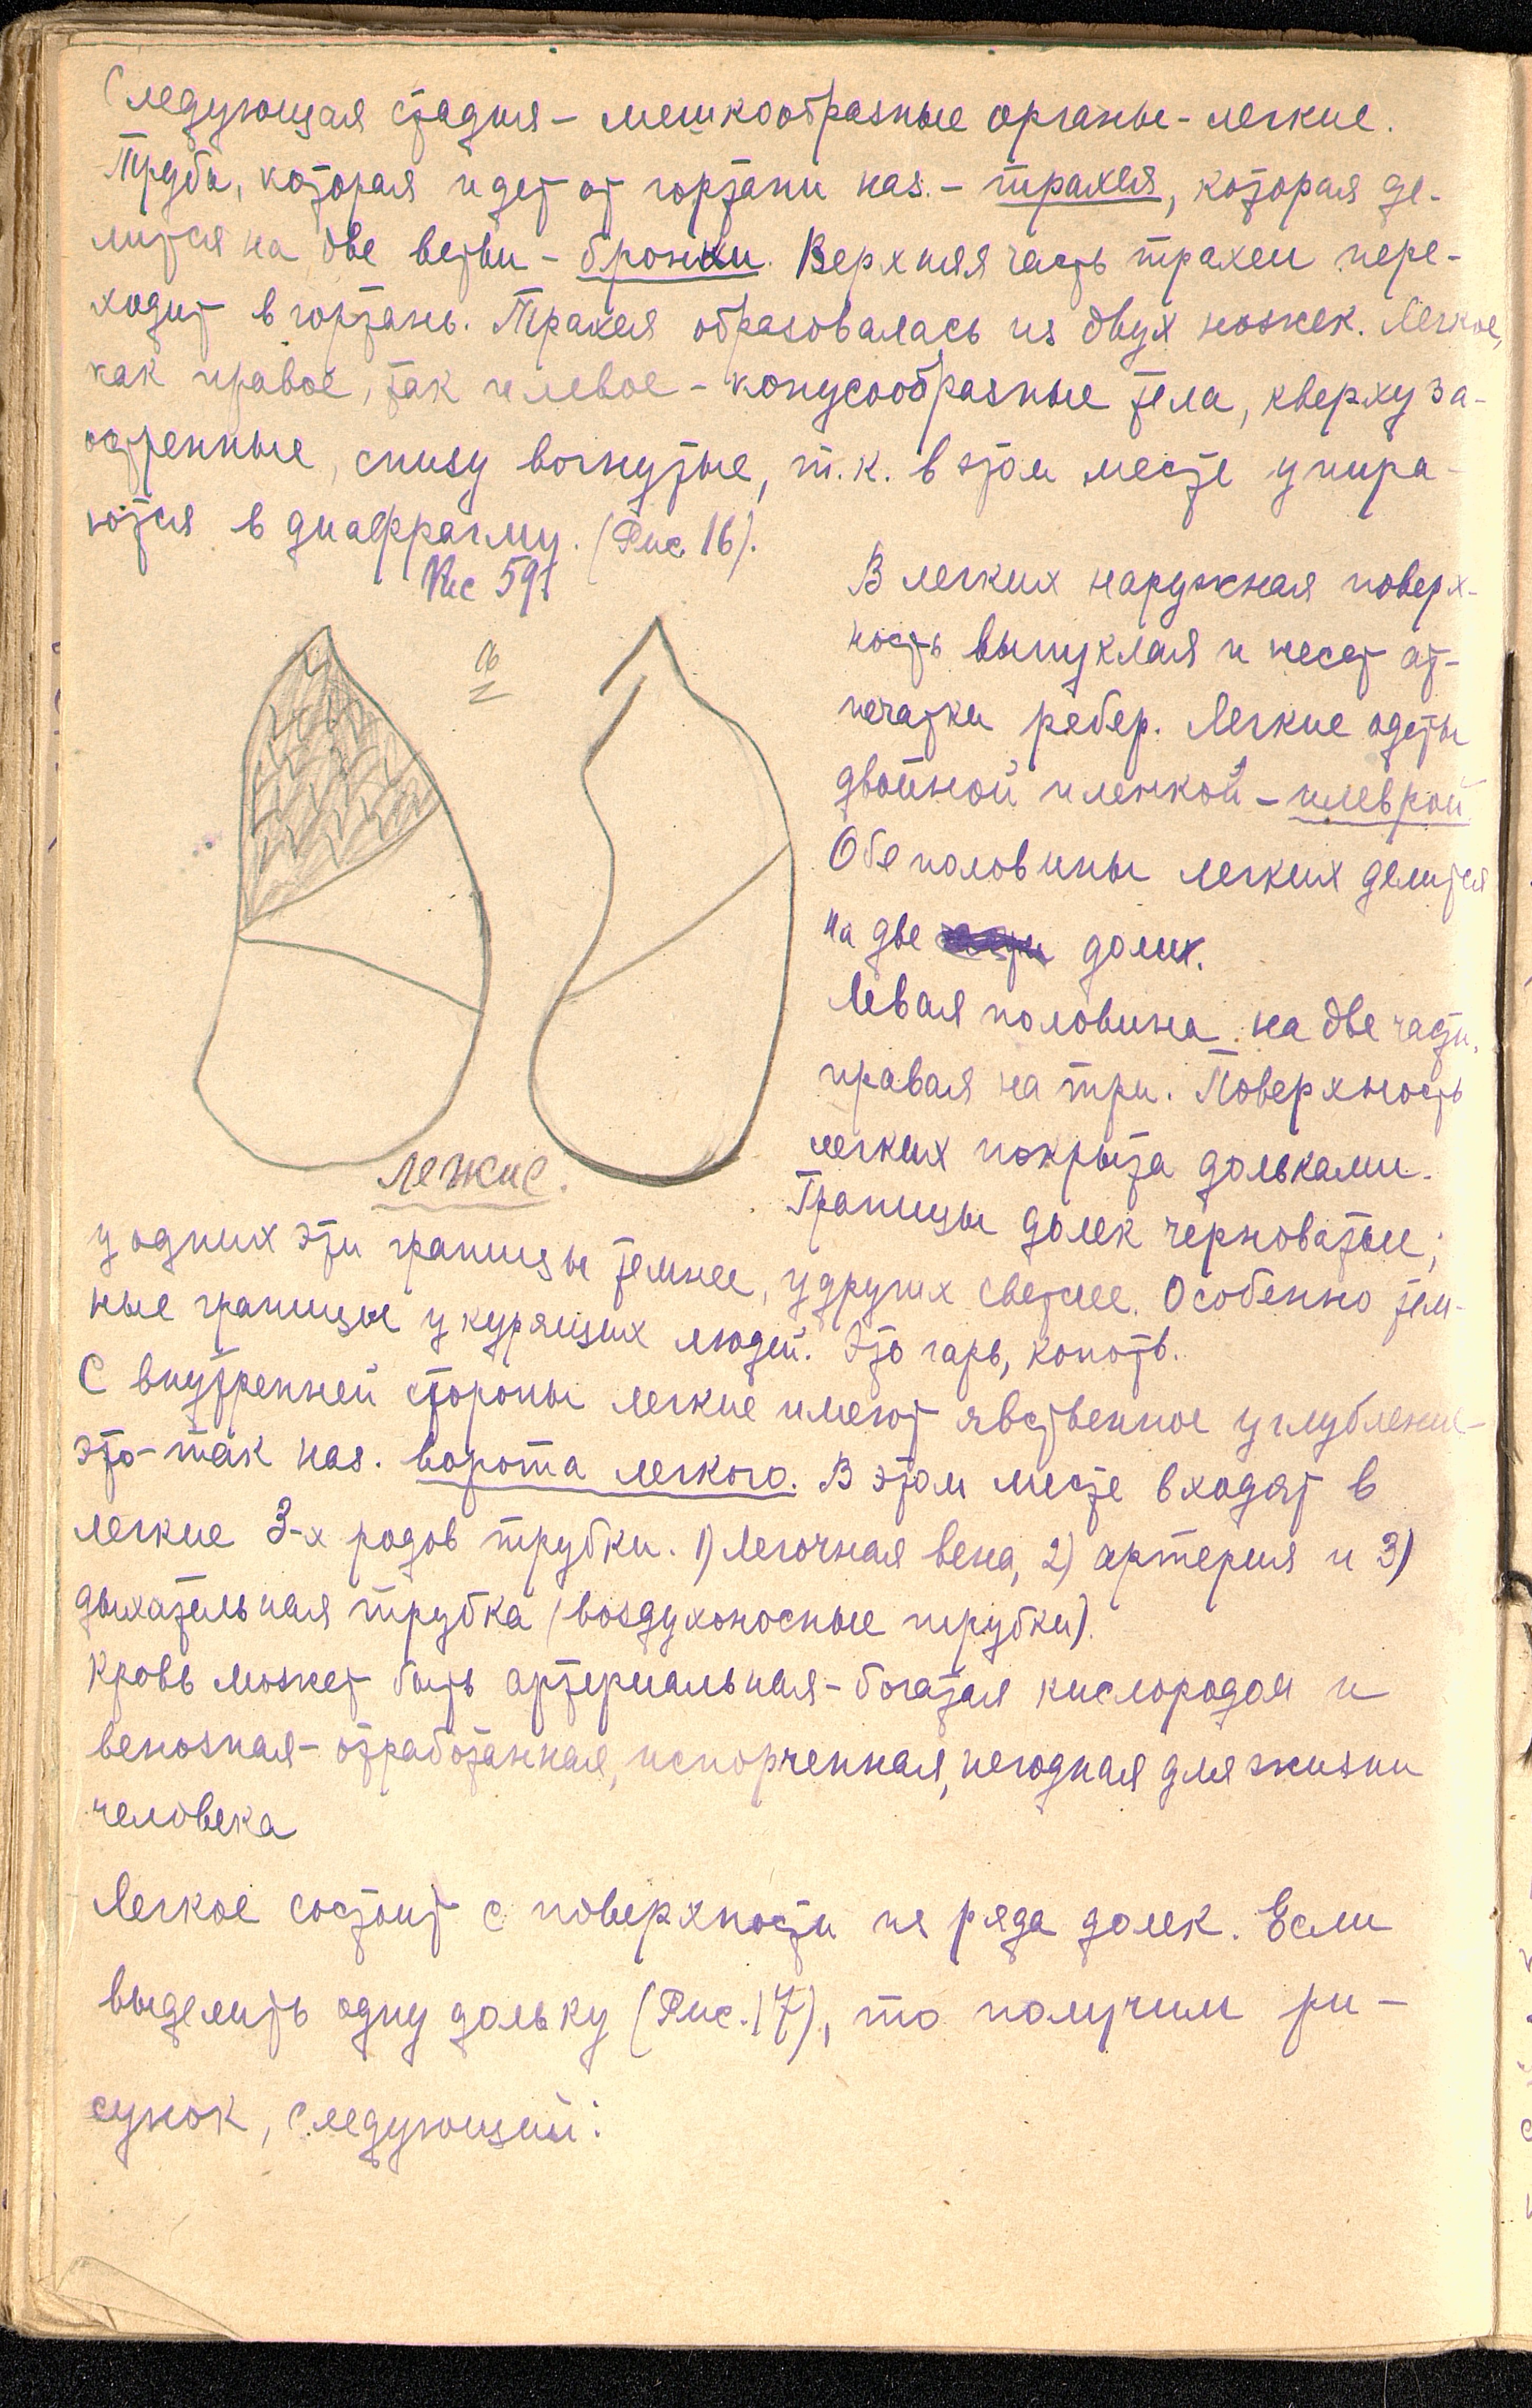 Следующая стадия - мешкообразные органы - легкие.
Труба, которая идет от гортани наз. - трахея, которая де-
лится на две ветви - бронхи. Верхняя часть трахеи пере-
ходит в гортань. Трахея образовалась из двух ножек. Легкое,
как правое, так и левое - конусообразные тела, кверху за-
остренные, снизу вогнутые, т.к. в этом месте упира-
ются в диафрагму. (Рис. 16).
Рис 59
16
В легких наружная поверх-
ность выпуклая и несет от-
печатки ребер. Легкие одеты
двойной пленкой - плеврой
Обе половины легких делится
на две доли.
Левая половина на две части,
правая на три. Поверхность
легких покрыта дольками.
Легкие.
Границы долек черноватые;
у одних эти границы темнее, у других светлее. Особенно тем-
ные границы у курящих людей. Это гарь, копоть.
С внутренней стороны легкие имеют явственное углубление -
это так наз. ворота легкого. В этом месте входят в
легкие 3-х родов трубки. 1) Легочная вена, 2) артерия и 3)
дыхательная трубка (воздухоносные трубки).
Кровь может быть артериальная - богатая кислородом и
венозная - отработанная, испорченная, негодная для жизни
человека
Легкое состоит с поверхности из ряда долек. Если
выделить одну дольку (Рис. 17), то получим ри-
сунок, следующий: